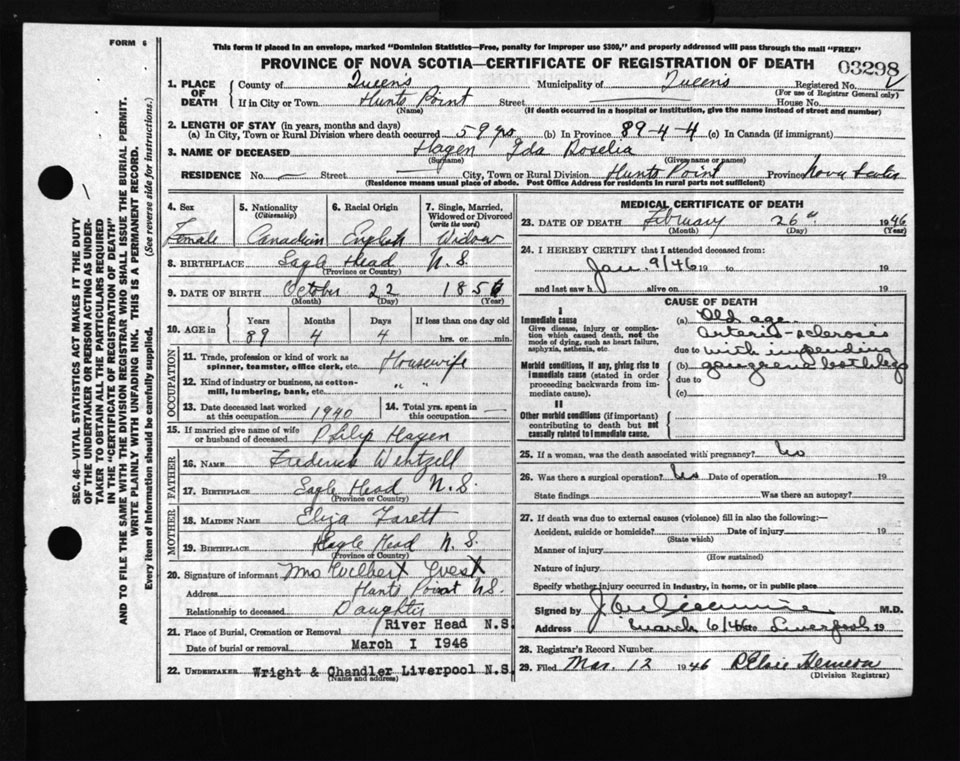 FORM 6
This form if placed in an envelope, marked "Dominion Statistics—Free, penalty for improper use $300," and properly addressed will pass through the mail "FREE"
PROVINCE OF NOVA SCOTIA—CERTIFICATE OF REGISTRATION OF DEATH
03298
1. PLACE OF DEATH
County of Queens Municipality of Queens Registered No.
(For use of Registrar General only)
If in City or Town Hunts Point Street House No.
(Name) (If death occurred in a hospital or institution, give the name instead of street and number)
2. LENGTH OF STAY (in years, months and days)
(a) In City, Town or Rural Division where death occurred 59 yrs (b) In Province 89-4-4 (c) In Canada (if immigrant)
3. NAME OF DECEASED Hagen Ida Roselia
(Surname) (Given name or names)
RESIDENCE No. — Street — City, Town or Rural Division Hunts Point Province Nova Scotia
(Residence means usual place of abode. Post Office Address for residents in rural parts not sufficient)
4. Sex Female
5. Nationality (Citizenship) Canadian
6. Racial Origin English
7. Single, Married, Widowed or Divorced (write the word) Widow
8. BIRTHPLACE Eagle Head N.S.
(Province or Country)
9. DATE OF BIRTH October 22 1856
(Month) (Day) (Year)
10. AGE in Years Months Days If less than one day old
89 4 4 hrs. or min.
OCCUPATION
11. Trade, profession or kind of work as spinner, teamster, office clerk, etc. Housewife
12. Kind of industry or business, as cotton-mill, lumbering, bank, etc. " "
13. Date deceased last worked at this occupation 1940
14. Total yrs. spent in this occupation —
15. If married give name of wife or husband of deceased Philip Hagen
FATHER
16. NAME Frederick Wentzell
17. BIRTHPLACE Eagle Head N.S.
(Province or Country)
MOTHER
18. MAIDEN NAME Eliza
19. BIRTHPLACE Eagle Head N.S.
(Province or Country)
20. Signature of informant Mrs Wilbert
Address Hunts Point N.S.
Relationship to deceased Daughter
21. Place of Burial, Cremation or Removal River Head N.S.
Date of burial or removal March I 1946
22. UNDERTAKER Wright & Chandler Liverpool N.S.
(Name and address)
MEDICAL CERTIFICATE OF DEATH
23. DATE OF DEATH February 26th 1946
(Month) (Day) (Year)
24. I HEREBY CERTIFY that I attended deceased from:
Jan. 9/46 19 to 19
and last saw h alive on 19
CAUSE OF DEATH
I
Immediate cause
Give disease, injury or complication which caused death, not the mode of dying, such as heart failure, asphyxia, asthenia, etc.
(a) Old age
arterio-sclerosis
due to with impending
Morbid conditions, if any, giving rise to immediate cause (stated in order proceeding backwards from immediate cause).
(b) gangrene both legs
due to
(c)
II
Other morbid conditions (if important) contributing to death but not causally related to immediate cause.
25. If a woman, was the death associated with pregnancy? No
26. Was there a surgical operation? No Date of operation 19
State findings Was there an autopsy?
27. If death was due to external causes (violence) fill in also the following:—
Accident, suicide or homicide? Date of injury 19
(State which)
Manner of injury
(How sustained)
Nature of injury
Specify whether injury occurred in industry, in home, or in public place
Signed by M.D.
Address March 6/46 Liverpool 19
28. Registrar's Record Number
29. Filed Mar. 12 1946
(Division Registrar)
SEC. 46—VITAL STATISTICS ACT MAKES IT THE DUTY
OF THE UNDERTAKER OR PERSON ACTING AS UNDER-
TAKER TO OBTAIN ALL THE PARTICULARS REQUIRED
IN THE "CERTIFICATE OF REGISTRATION OF DEATH"
AND TO FILE THE SAME WITH THE DIVISION REGISTRAR WHO SHALL ISSUE THE BURIAL PERMIT.
WRITE PLAINLY WITH UNFADING INK. THIS IS A PERMANENT RECORD.
Every item of Information should be carefully supplied. (See reverse side for instructions.)